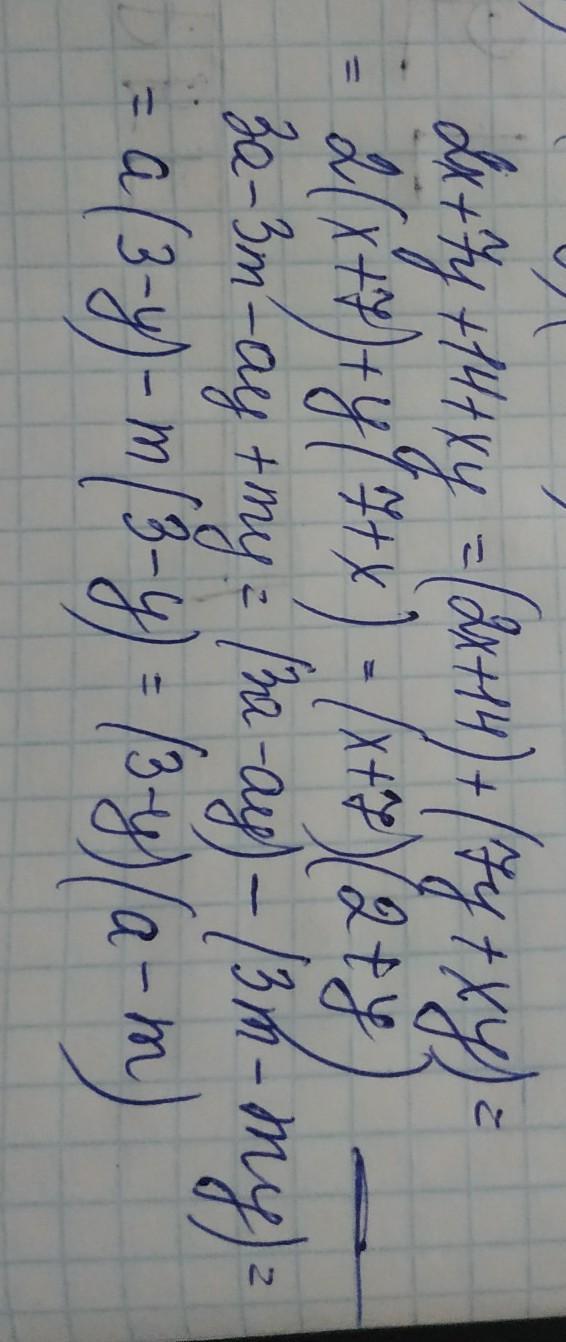 2x+7y+14+xy=(2x+14)+(7y+xy)=
=2(x+7)+y(7+x)=(x+7)(2+y)
3a-3m-ay+my=(3a-ay)-(3m-my)=
=a(3-y)-m(3-y)=(3-y)(a-m)